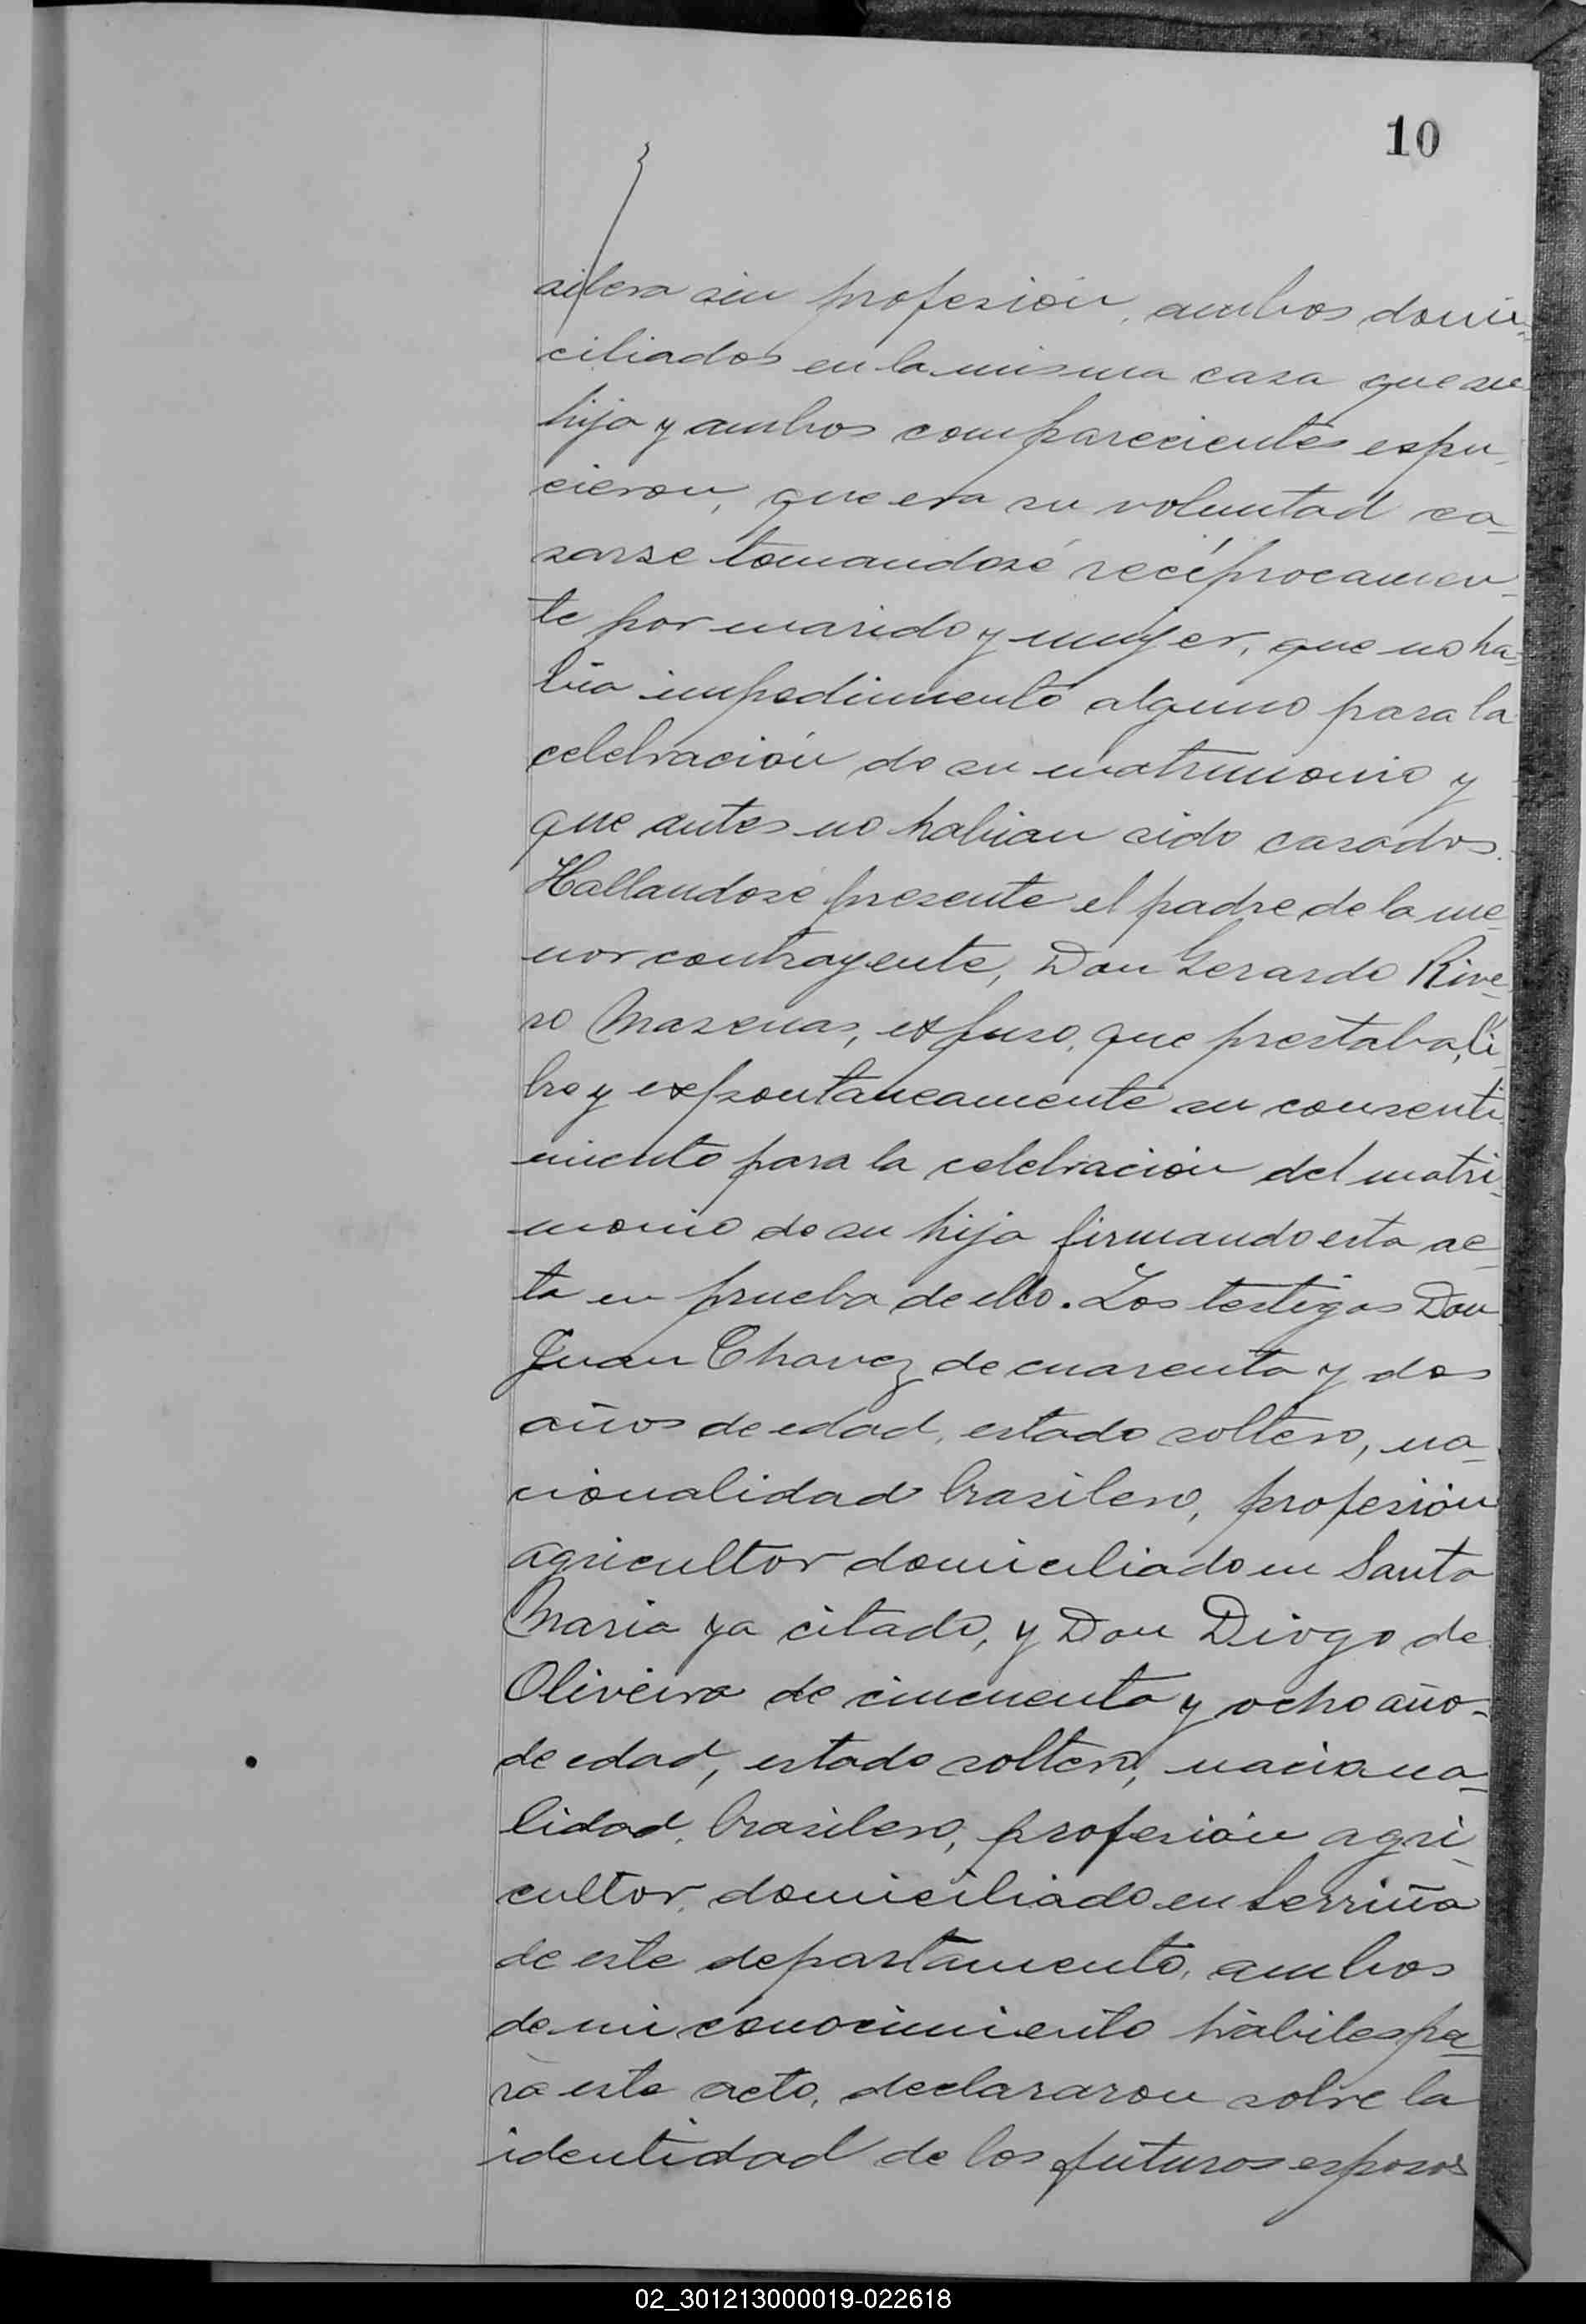 10
silera sin profesión, ambos domi-
ciliados en la misma casa que su
hija y ambos comparecientes espu-
cieron, que era su voluntad ca-
sarse tomandosé recíprocamen-
te por marido y mujer, que no ha-
bia impedimento alguno para la
celebración de su matrimonio y
que antes no habian sido casados.
Hallandose presente el padre de la me-
nor contrayente, Don Gerardo Rive-
ro Marenas, expuso, que prestaba, li-
bre y expontaneamente su consenti-
miento para la celebración del matri-
monio de su hija firmando esta ac-
ta en prueba de ello. Los testigos Don
Juan Chavez de cuarenta y dos
años de edad, estado soltero, na-
cionalidad brasilero, profesión
agricultor domiciliado en Santa
Maria ya citado, y Don Diogo de
Oliveira de cincuenta y ocho año-
de edad, estado soltero, naciona-
lidad, brasilero, profesión agri-
cultor, domiciliado en Serriña
de este departamento, ambos
de mi conocimiento hábiles pa-
ra este acto, declararon sobre la
identidad de los futuros esposos
02_301213000019-022618